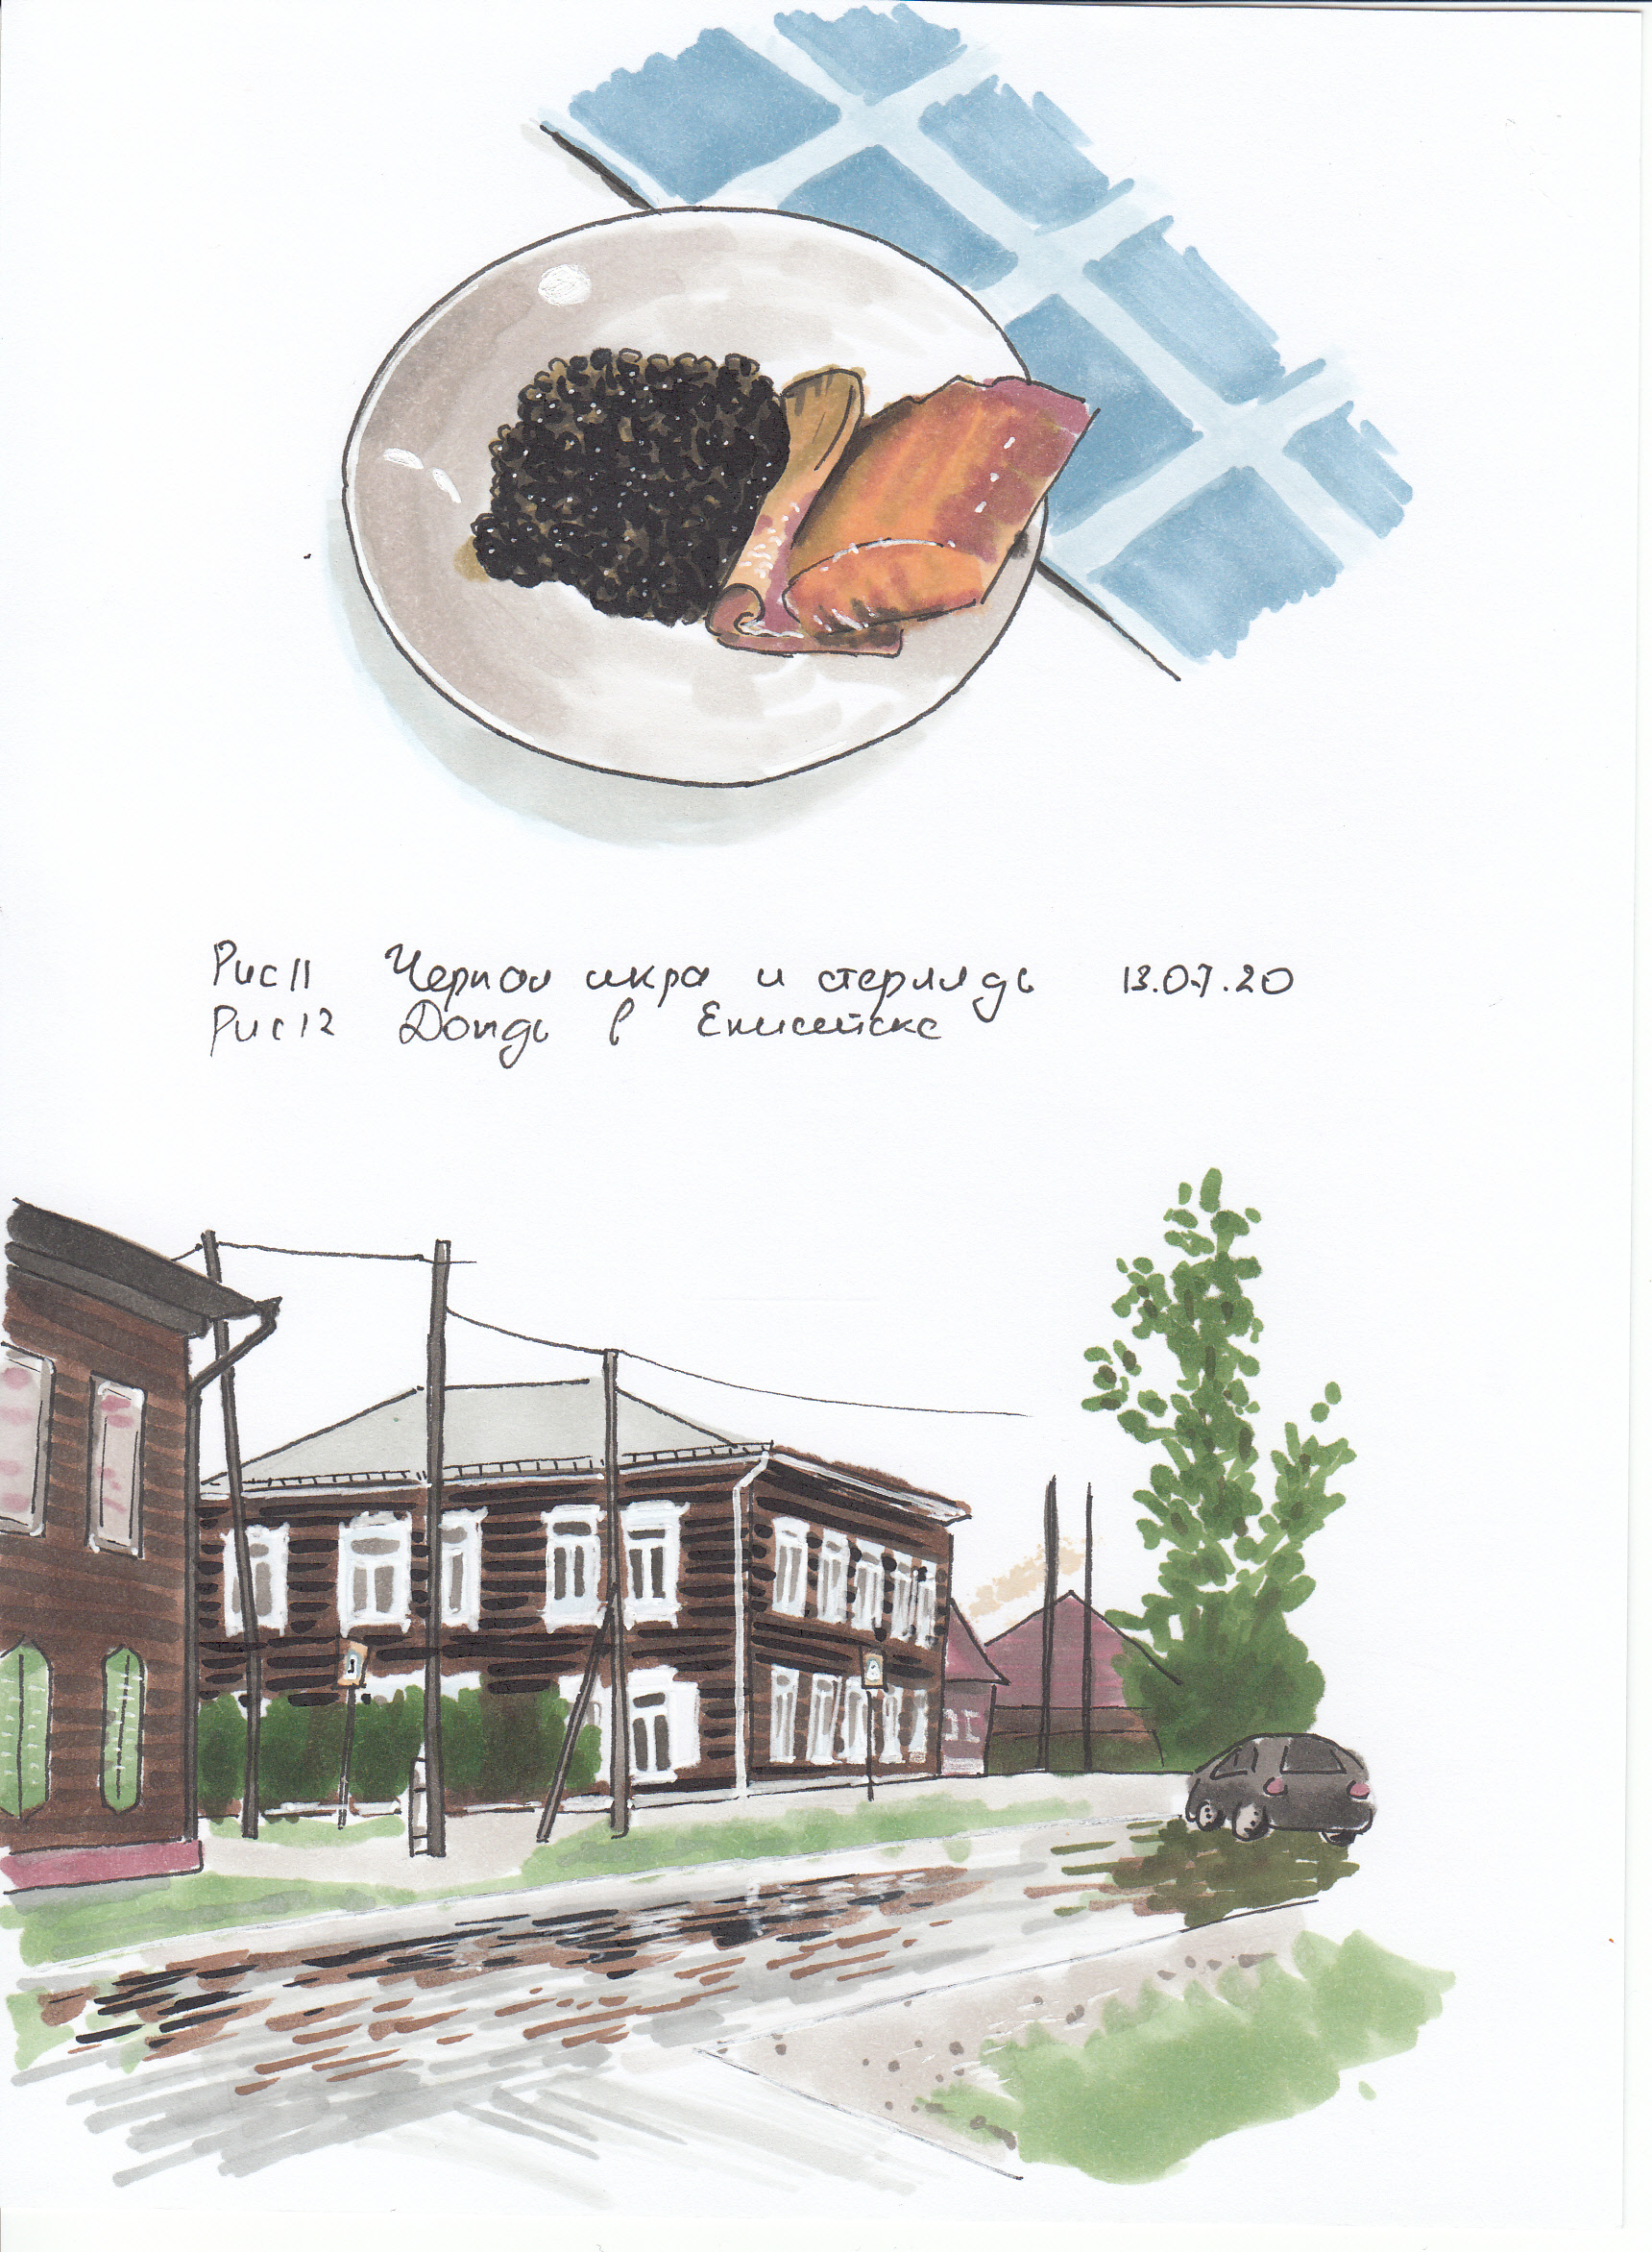 Рис 11 Черная икра и стерлядь 13.07.20
Рис 12 Дождь в Енисейске